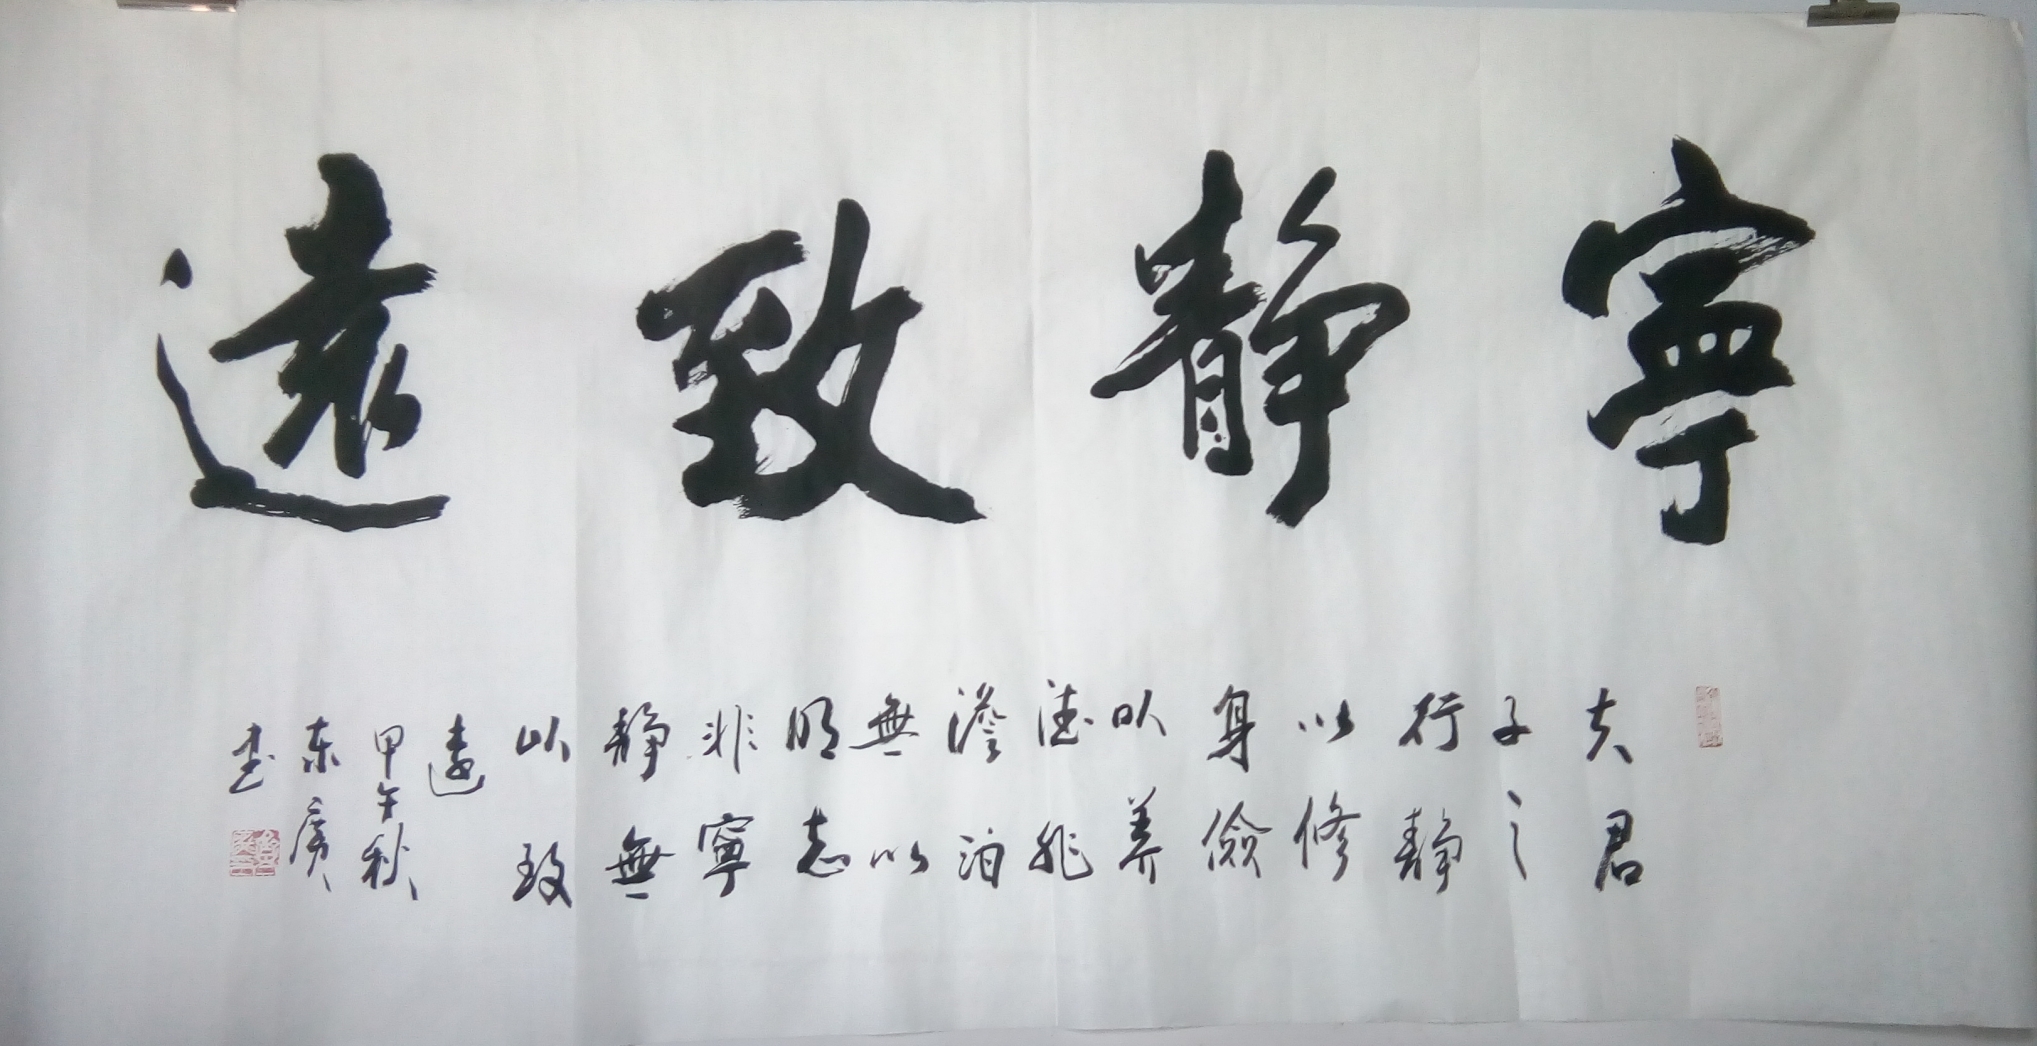 寧靜致遠
夫君
子之
行静
以修
身儉
以养
德非
澹泊
無以
明志
非寧
静無
以致
遠
甲午秋
东廣
书